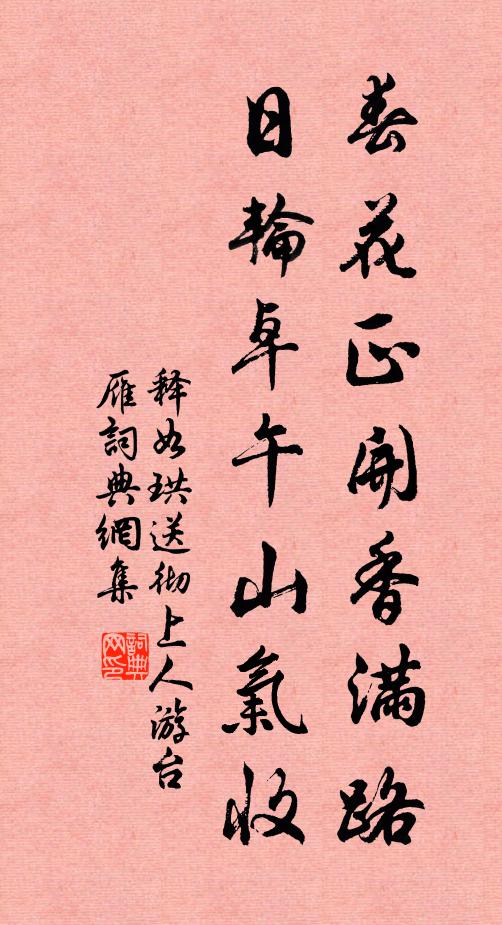 春花正開香滿路
日輪卓午山氣收
释如珙送彻上人游台
雁詞典網集
詞典
网印